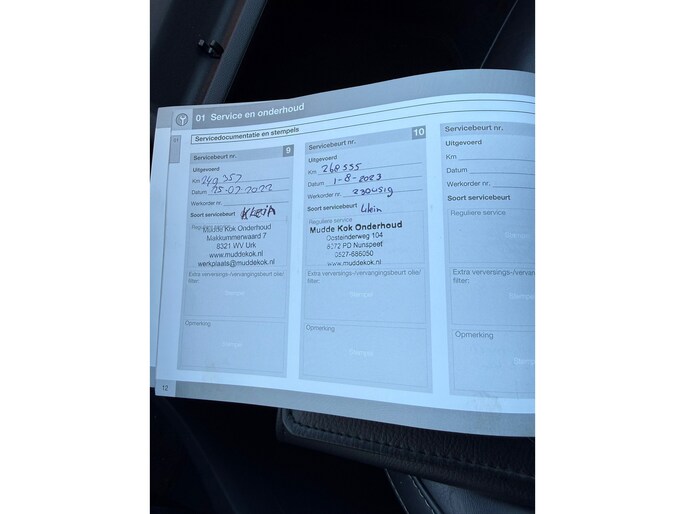 01 Service en onderhoud
01
Servicedocumentatie en stempels
Servicebeurt nr. 9
Uitgevoerd
Km 249 357
Datum 15-07-2022
Werkorder nr.
Soort servicebeurt Klein
Reguliere service
Mudde Kok Onderhoud
Makkummerwaard 7
8321 WV Urk
www.muddekok.nl
werkplaats@muddekok.nl
Extra verversings-/vervangingsbeurt olie/
filter:
Stempel
Opmerking
Stempel
12
Servicebeurt nr. 10
Uitgevoerd
Km 268535
Datum 1-8-2023
Werkorder nr.
Soort servicebeurt klein
Reguliere service
Mudde Kok Onderhoud
Oosteinderweg 104
8072 PD Nunspeet
0527-686050
www.muddekok.nl
Extra verversings-/vervangingsbeurt olie/
filter:
Stempel
Opmerking
Stempel
Servicebeurt nr.
Uitgevoerd
Km
Datum
Werkorder nr.
Soort servicebeurt
Reguliere service
Extra verversings-/vervangings
filter:
Stempel
Opmerking